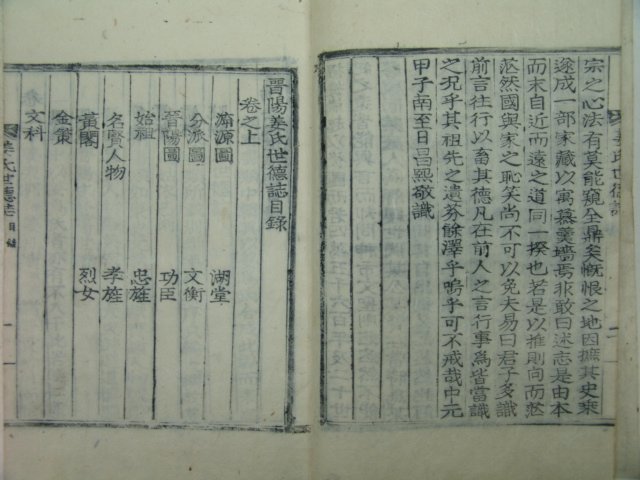 宗之心法有莫能窺全鼎矣慨恨之地因摭其史乘
遂成一部家藏以寓慕羹墻焉非敢曰述志是由本
而末自近而遠之道同一揆也若是以推則向而茫
茫然國與家之恥笑尚不可以免夫易曰君子多識
前言往行以畜其德凡在前人之言行事爲皆當識
之況乎其祖先之遺芬餘澤乎嗚乎可不戒哉中元
甲子南至日昌熙敬識
晋陽姜氏世德誌目錄
卷之上
溯源圖 湖堂
分派圖 文衡
晋陽圖 功臣
始祖 忠旌
名賢人物 孝旌
黃閣 烈女
金蘂
文科
姜氏世德誌 目錄 一